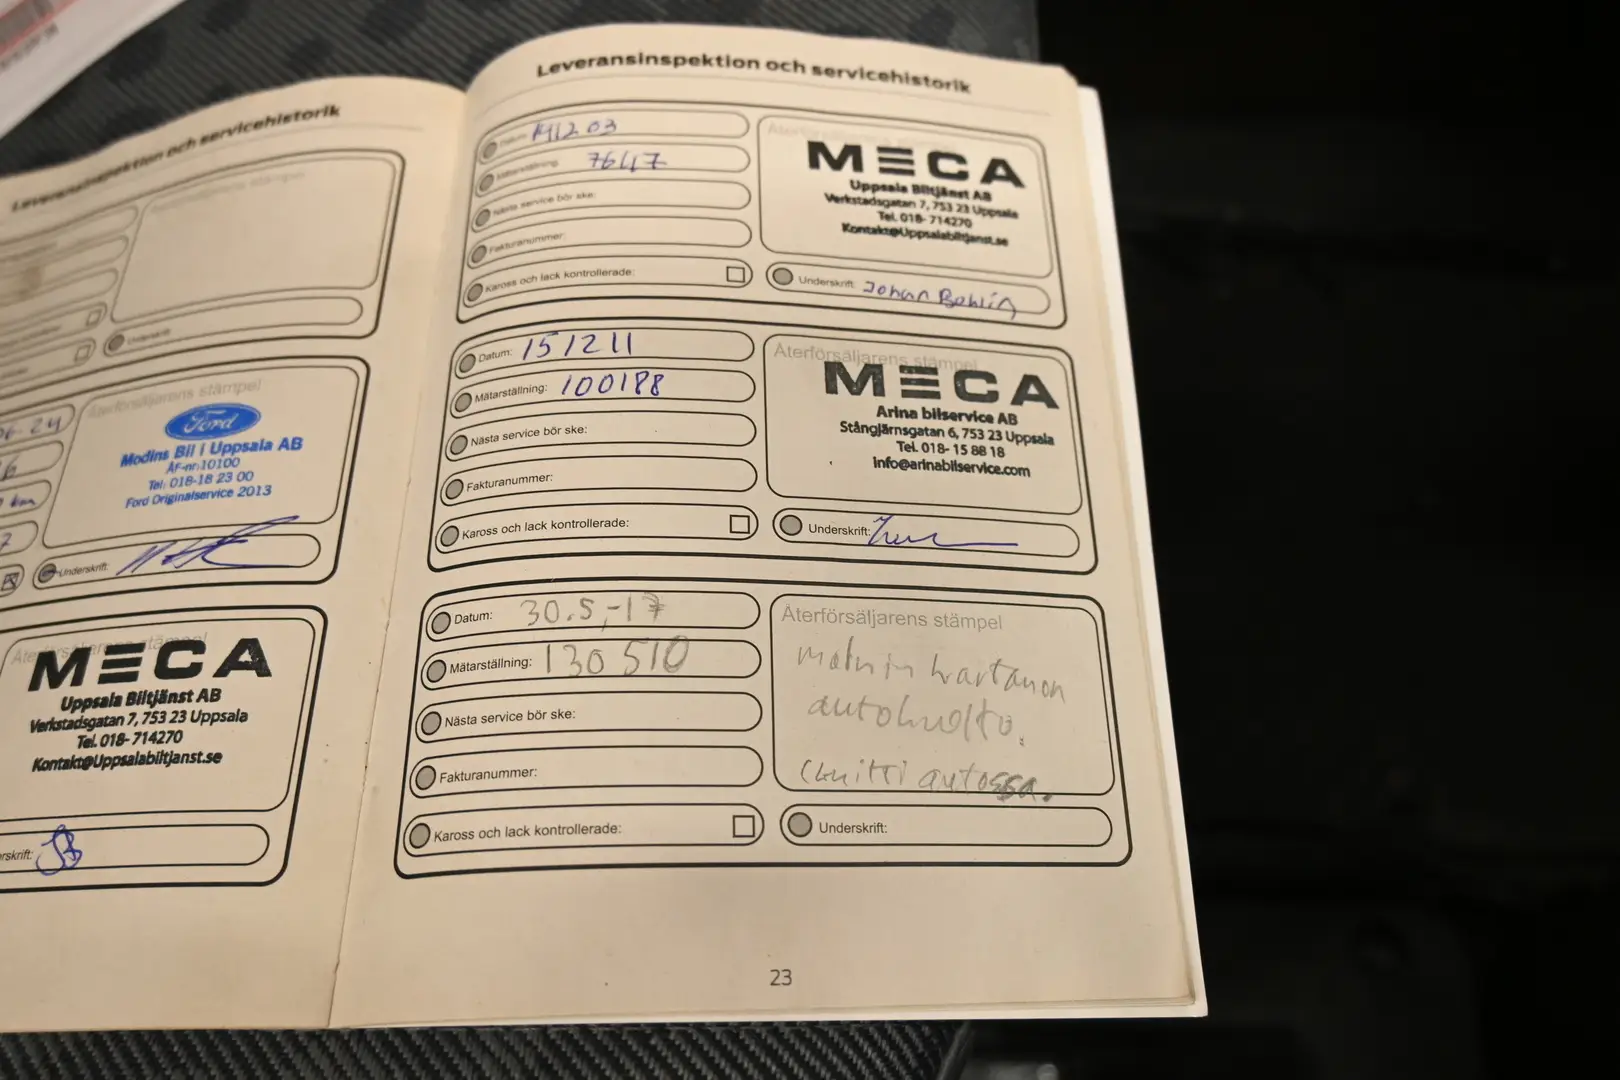 Leveransinspektion och servicehistorik
Återförsäljarens stämpel
Underskrift:
06.24
Återförsäljarens stämpel
Ford
Modins Bil i Uppsala AB
ÅF-nr:10100
Tel: 018-18 23 00
Ford Originalservice 2013
Underskrift:
Återförsäljarens stämpel
MECA
Uppsala Biltjänst AB
Verkstadsgatan 7, 753 23 Uppsala
Tel. 018- 714270
Kontakt@Uppsalabiltjanst.se
erskrift:
Leveransinspektion och servicehistorik
Datum: 141203
Mätarställning: 7647
Nästa service bör ske:
Fakturanummer:
Kaross och lack kontrollerade:
MECA
Uppsala Biltjänst AB
Verkstadsgatan 7, 753 23 Uppsala
Tel. 018- 714270
Kontakt@Uppsalabiltjanst.se
Underskrift: Johan Bohlin
Datum: 151211
Mätarställning: 100188
Nästa service bör ske:
Fakturanummer:
Kaross och lack kontrollerade:
Återförsäljarens stämpel
MECA
Arina bilservice AB
Stångjärnsgatan 6, 753 23 Uppsala
Tel. 018- 15 88 18
info@arinabilservice.com
Underskrift:
Datum: 30.5,-17
Mätarställning: 130 510
Nästa service bör ske:
Fakturanummer:
Kaross och lack kontrollerade:
Återförsäljarens stämpel
hartanon
autohuolto.
autossa.
Underskrift:
23